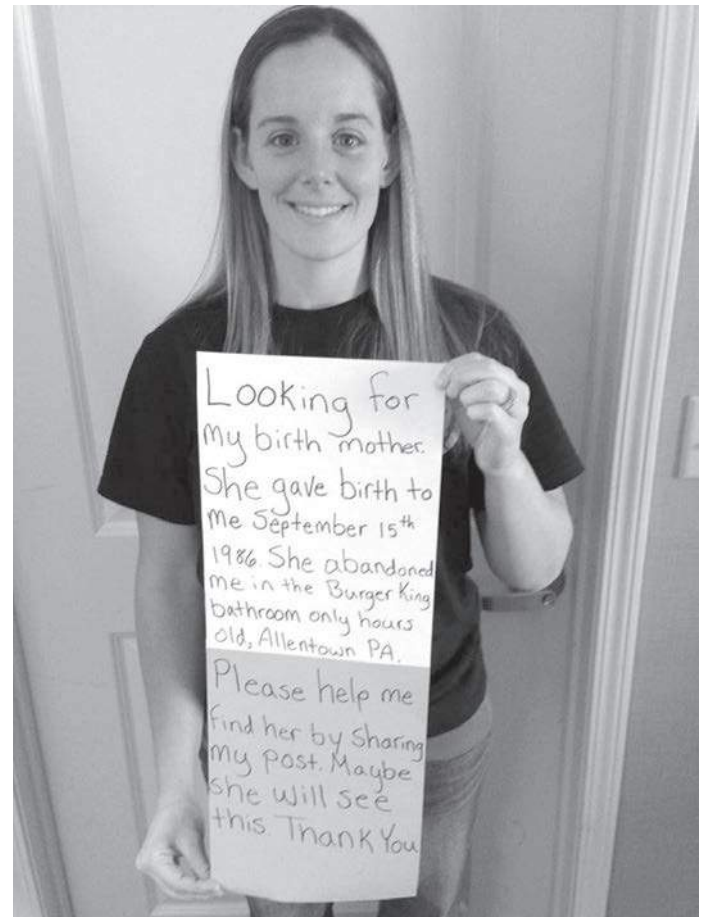 Looking for
my birth mother.
She gave birth to
me September 15th
1986. She abandoned
me in the Burger King
bathroom only hours
old, Allentown PA.
Please help me
find her by sharing
my post. Maybe
she will see
this. Thank You